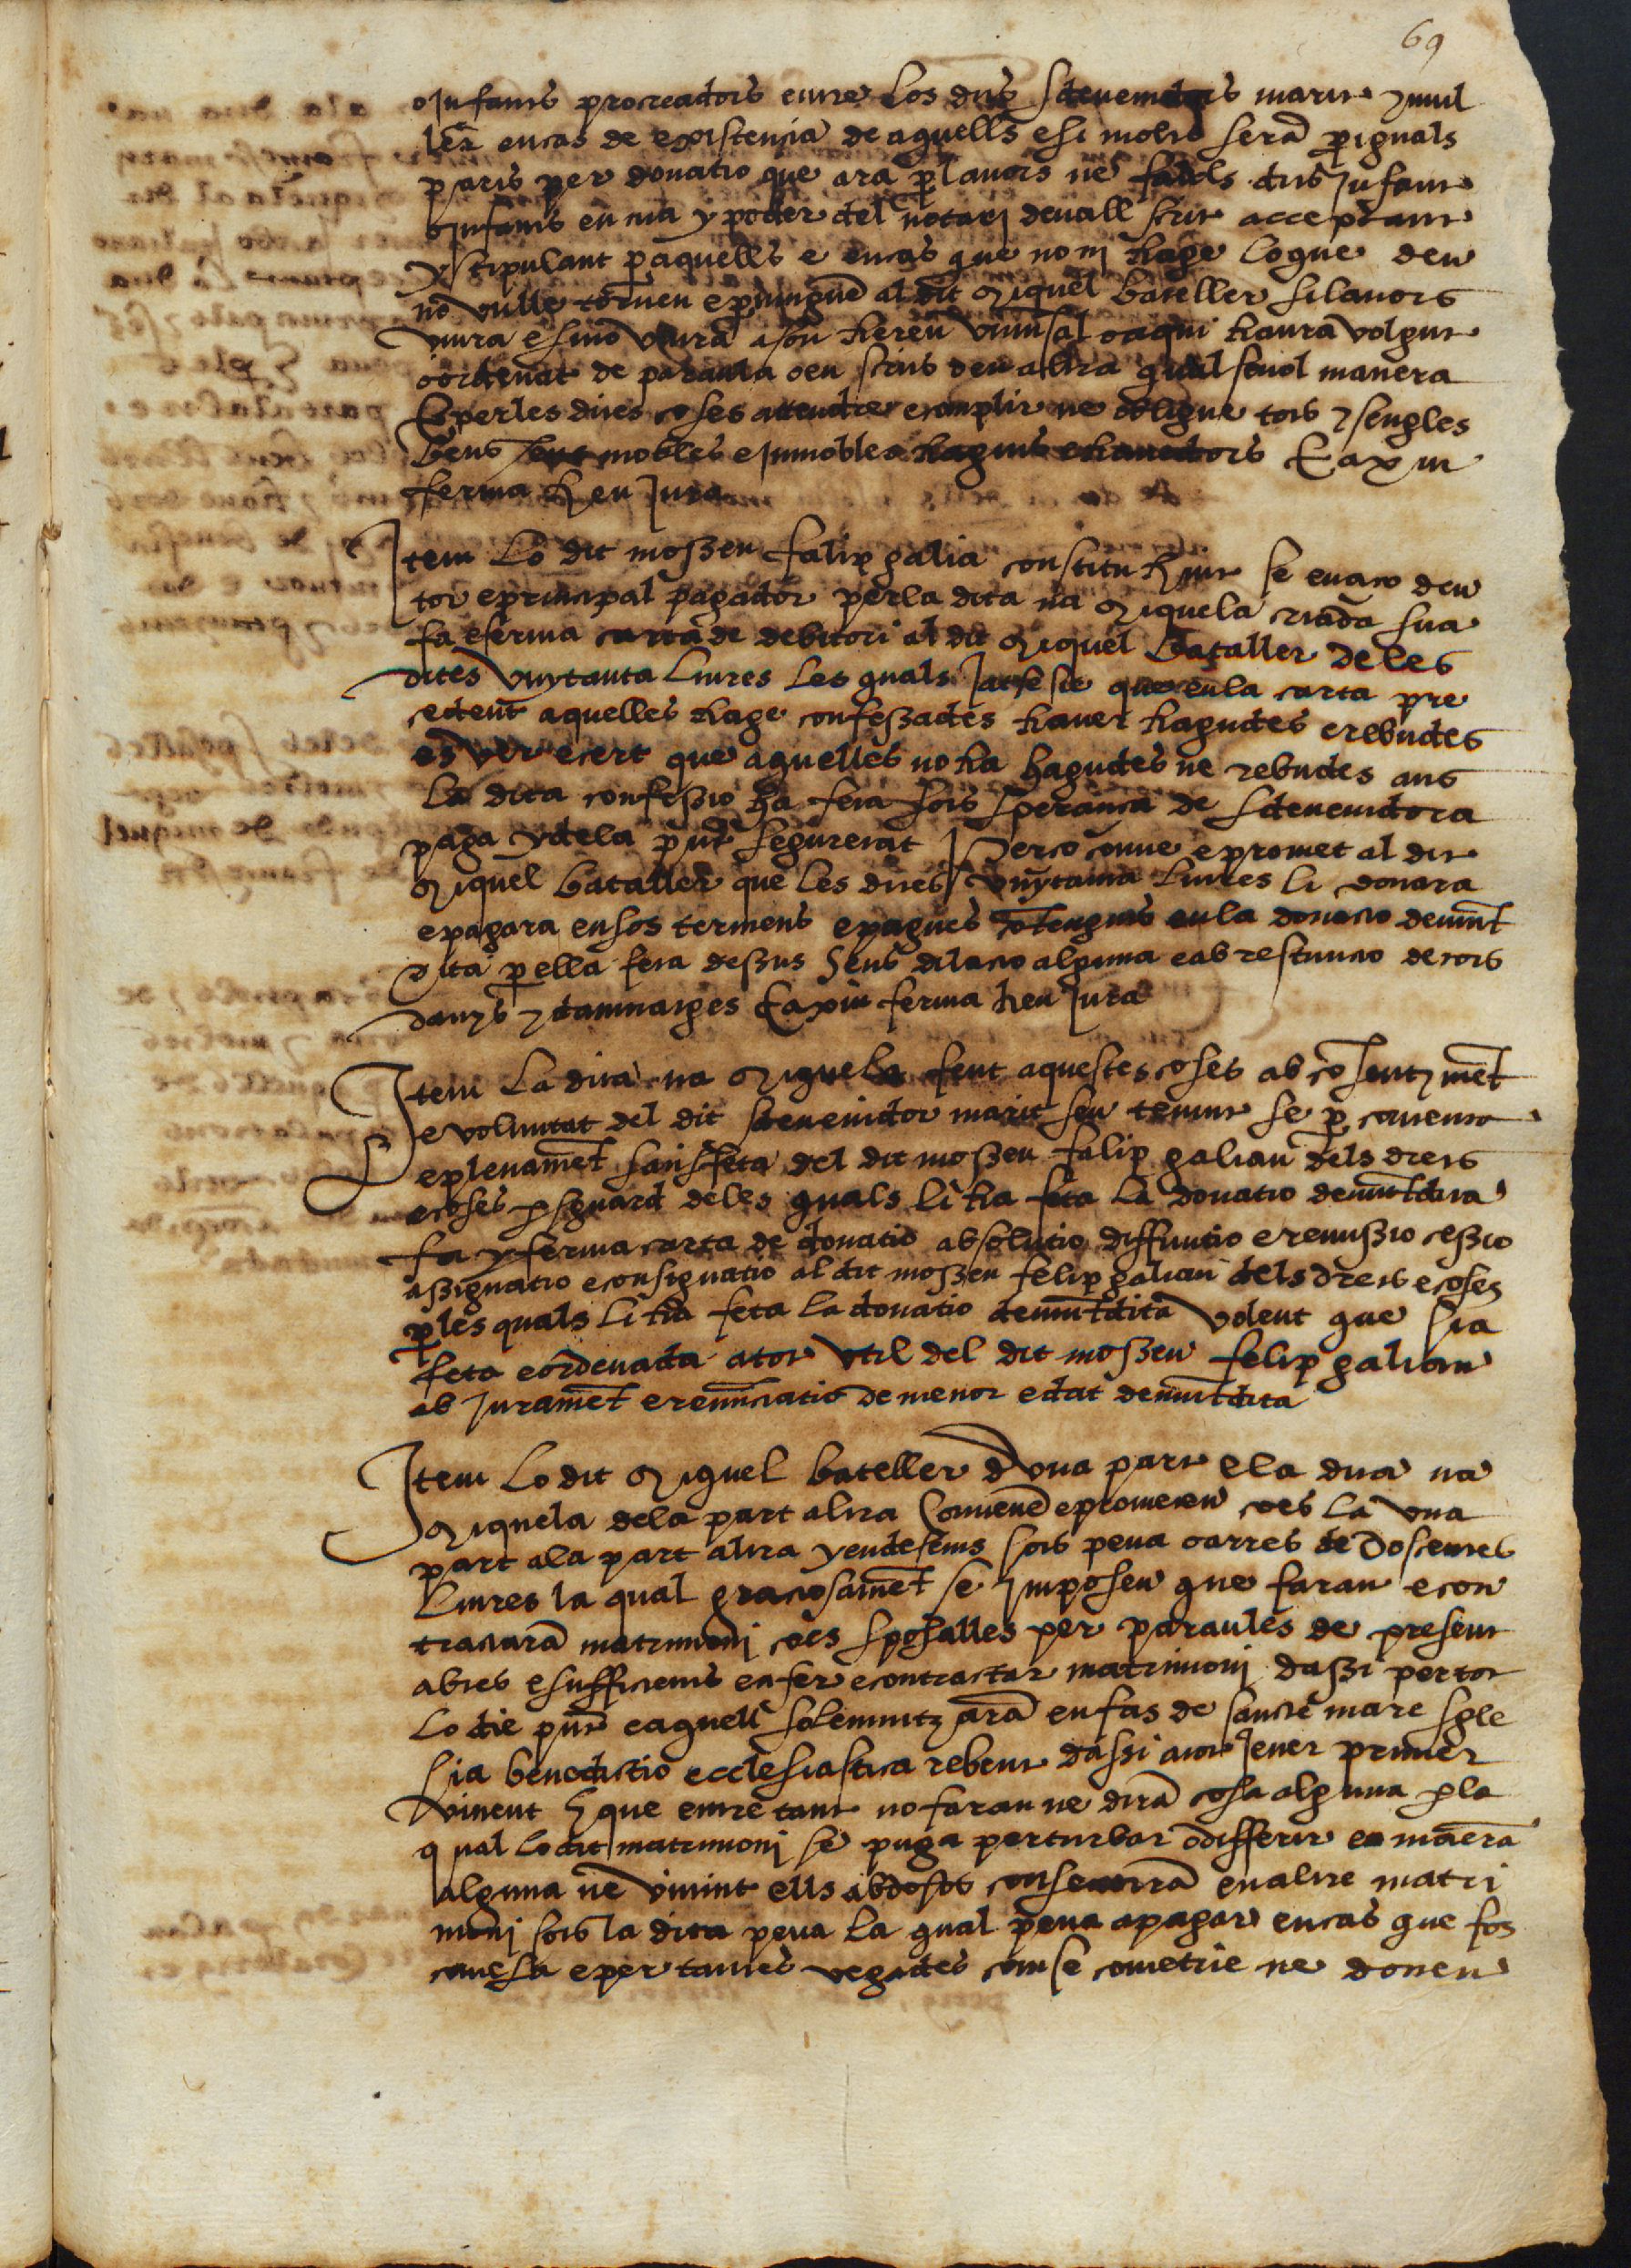 69
o jnfants procreadors entre los dits sdevenidors marit y mul
ler en cas de existencia de aquells e si molts seran per iguals
parts per donatio que ara per lavors ne fa als dits jnfant
o jnfants en ma y poder del notari devall scrit acceptant
y stipulant per aquells e en cas que no ni hage lo que deu
no vulle tornen e pervinguen al dit Miquel bateller si lavors
viura e sino viura a son hereu universal o a qui haura volgut
o ordenat de paraula o en scrits o en altra qualsevol manera
E per les dites coses attendre e complir ne obligue tots y sengles
bens seus mobles e jnmobles haguts e havedors E axi u
ferma h en jura
Jtem Lo dit mossen falip galia constituhint se en aço deu
tor e principal pagador per la dita na Miquela criada sua
fa e ferma carta de debitori al dit Miquel Bataller de les
dites vuytanta liures les quals jatsesie que en la carta pre
cedent aquelles hage confessades haver hagudes e rebudes
es ver e cert que aquelles no ha hagudes ne rebudes ans
la dita confessio ha feta sots sperança de sdevenidora
paga y de la pnt seguretat Perço conve e promet al dit
Miquel bataller que les dites vuytanta liures li donara
e pagara en sos termens e pagues contenguts en la donacio demunt
dita per ella feta dessus sens dilacio alguna e ab restitucio de tots
danys y damnatges E axi u ferma h en jura
Jtem La dita na Miquela fent aquestes coses ab consentiment
e voluntat del dit sdevenidor marit seu tenint se per contenta
e plenament satisfeta del dit mossen falip galian dels drets
e coses per sguard de les quals li ha feta la donatio demuntdita
fa y ferma carta de donatio absolutio diffinitio e remissio cessio
assignatio e consignatio al dit mossen felip galian dels drets e coses
per les quals li ha feta la donatio demuntdita volent que sia
feta e ordenada a tot vtil del dit mossen felip galian
ab jurament e renunciatio de menor edat demuntdita
Jtem Lo dit Miquel bateller de vna part e la dita na
Miquela de la part altra Convenen e prometen ço es la vna
part a la part altra y endesems sots pena o arres de Doscentes
liures la qual graciosament se jmposen que faran e con
tractaran matrimoni ço es sposalles per paraules de present
abtes e sufficients en fer e contractar matrimoni dassi per tot
lo die pnt e aquell solemnitzaran en fas de sancte mare sgle
sia benedictio ecclesiastica rebent dassi a tot jener primer
vinent E que entre tant no faran ne diran cosa alguna per la
qual lo dit matrimoni se puga perturbar o differir en manera
alguna ne vivint ells abdosos consentiran en altre matri
moni sots la dita pena la qual pena a pagar en cas que fos
comesa e per tantes vegades com se cometrie ne donen